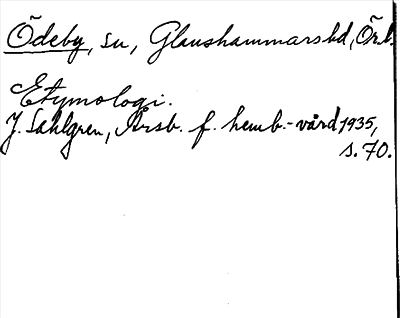 Ödeby, sn, Glanshammars hd, Ör.l.
Etymologi.
J. Sahlgren, Årsb. f. hemb.-vård 1935,
s. 70.